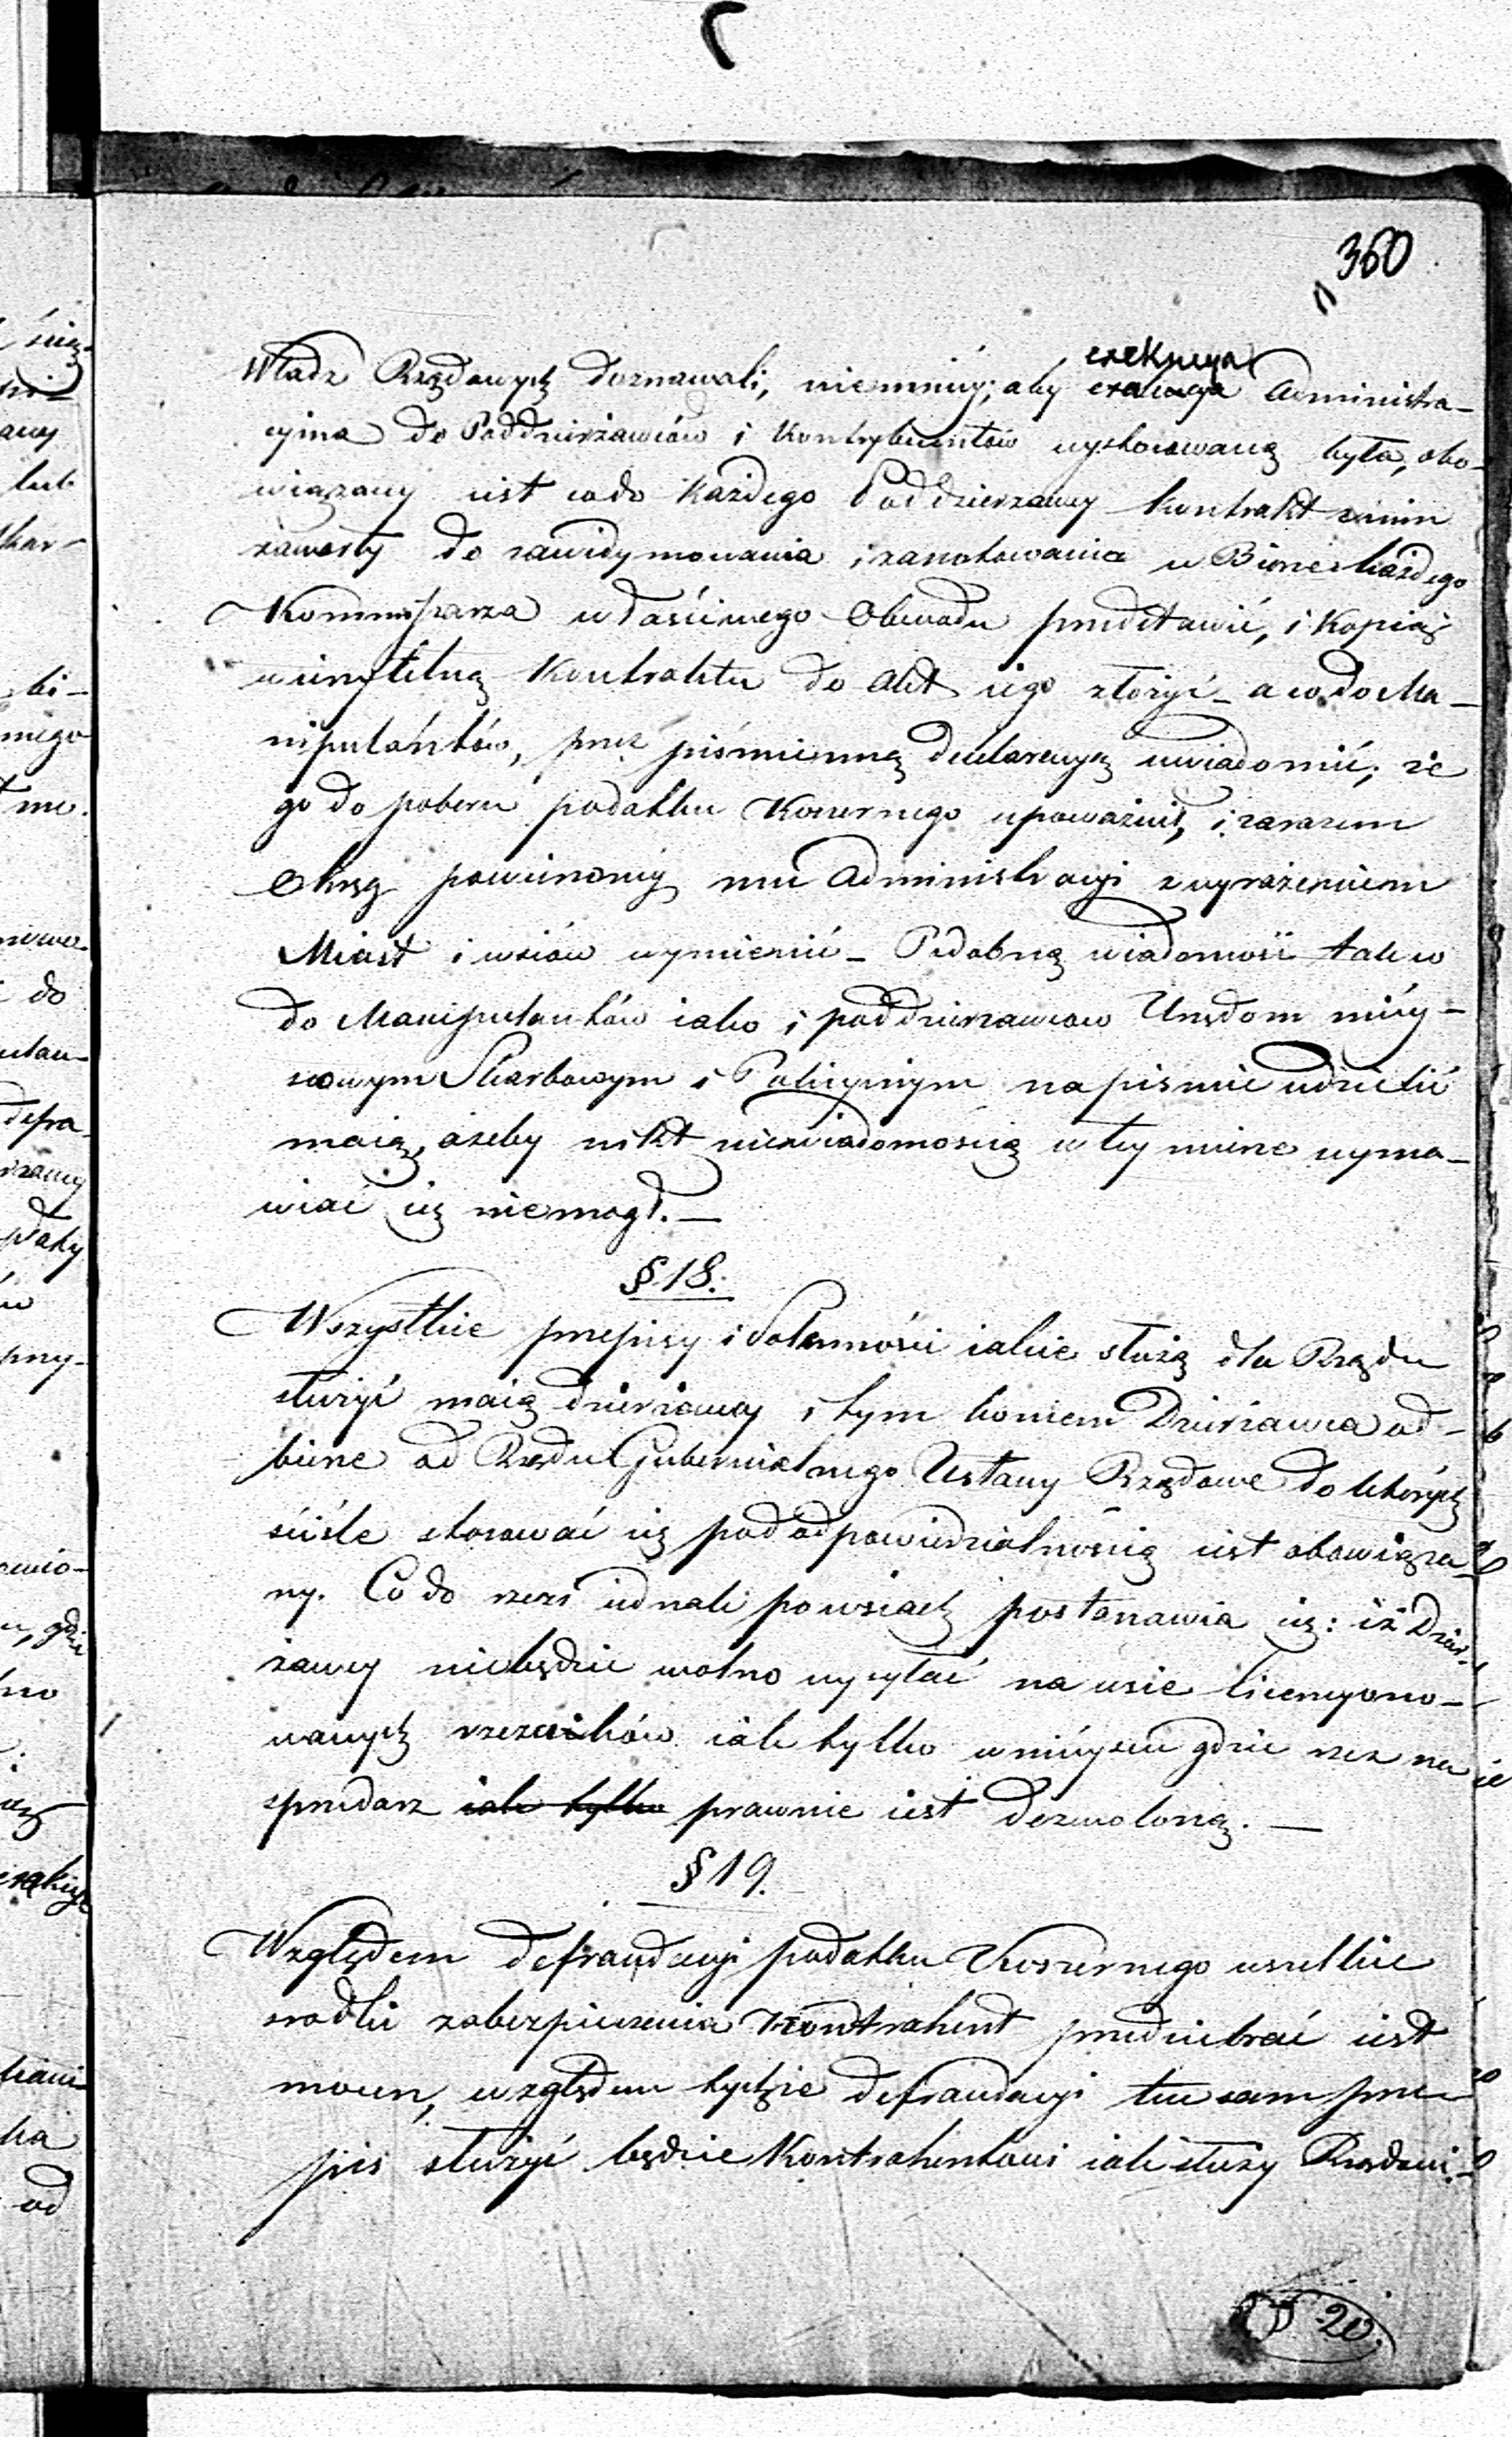 360
Władz Rządowych doznawali, niemniéy; aby exekucya Administra-
cyina do Poddzierżawców i Kontrybuentów wyskorowaną była, obo-
wiązany iest codo każdego Poddzierzawcy kontrakt znim
zawarty do zawidymowania i zanotowania w Biórze każdego
Kommissarza właściwego Obwodu przedstawić, i Kopiią
wierzytelną Kontraktu do Akt iego złożyć – a co do Ma-
nipulántów, przez piśmienną deklaracyą uwiadomić; że
go do poboru podatku Koszernego upoważnił, i zarazem
Okrąg powierzony mu Administracyi z wyrażeniem
Miast i wsiów wymienić – Podobną wiadomość tak co
do Manipulantów iako i poddzierzawców Urzędom miéy-
scowym Skarbowym i Policyinym na piśmie udzielić
maią, ażeby nikt niewiadomością w téy mierze wyma-
wiać się niemógł. –
§ 18.
Wszystkie przepisy i Solenności iakie służą dla Rządu
służyć maią dzierżawcy i tym końcem Dzierżawca od-
bierze od Rządu Gubernialnego Ustawy Rządowe do których
ściśle stosować się pod odpowiedzialnością iest obowiąza-
ny. Co do rzezi iednak po wsiach postanawia się: iż Dzier-
żawcy niebędzie wolno wysyłać na wsie licencyono-
wanych rzezaków iak tylko w miéyscu gdzie rzez na
sprzedarz iak tylko prawnie iest dozwoloną. –
§ 19.
Względem defraudacyi podatku Koszernego wszelkie
srodki zabezpieczenia Kontrahent przedsiebrać iest
mocen, względem tychże defraudacyi ten sam prze-
pis służyć będzie Kontrahentowi iak służy Rządowi.
§ 20.